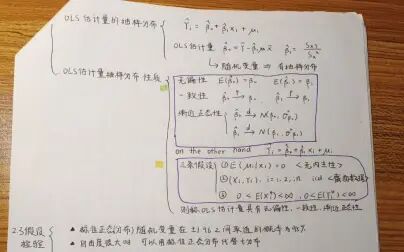 OLS估计量的抽样分布
Ŷᵢ = β̂₀ + β̂₁xᵢ + μᵢ
OLS估计量 β̂₀ = Ȳ - β̂₁x̄ β̂₁ =
↳随机变量 ⇒ 有抽样分布
OLS估计量抽样分布性质
无偏性 E(β̂₀) = β₀ E(β̂₁) = β₁
一致性 β̂₀ →ᵖ β₀ β̂₁ →ᵖ β₁
渐近正态性 β̂₀ →ᵈ N(β₀, σ²β̂₀)
β̂₁ →ᵈ N(β₁, σ²β̂₁)
on the other hand Yᵢ = β₀ + β₁xᵢ + μᵢ
三条假设 ① E(μᵢ|xᵢ) = 0 <无内生性>
② (Xᵢ, Yᵢ), i=1,2,…n iid
③ 0 < E(X⁴) < ∞, 0 < E(Y⁴) < ∞
则称OLS估计量具有无偏性,一致性,渐近正态性
2.3假设检验
标准正态分布随机变量在±1.96之间取值的概率为95%
自由度很大时 可以用标准正态分布代替t分布